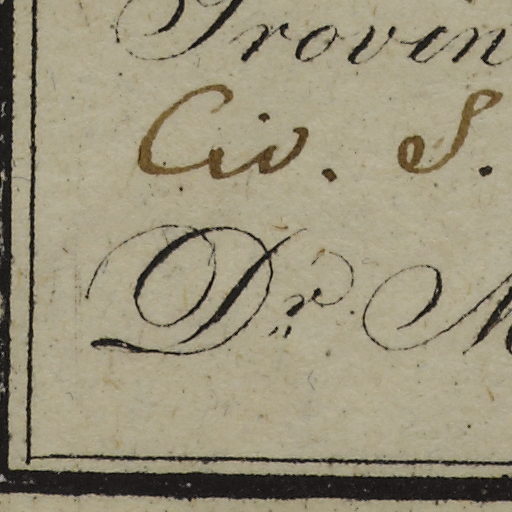 Provin
Civ. S.
Dr. M